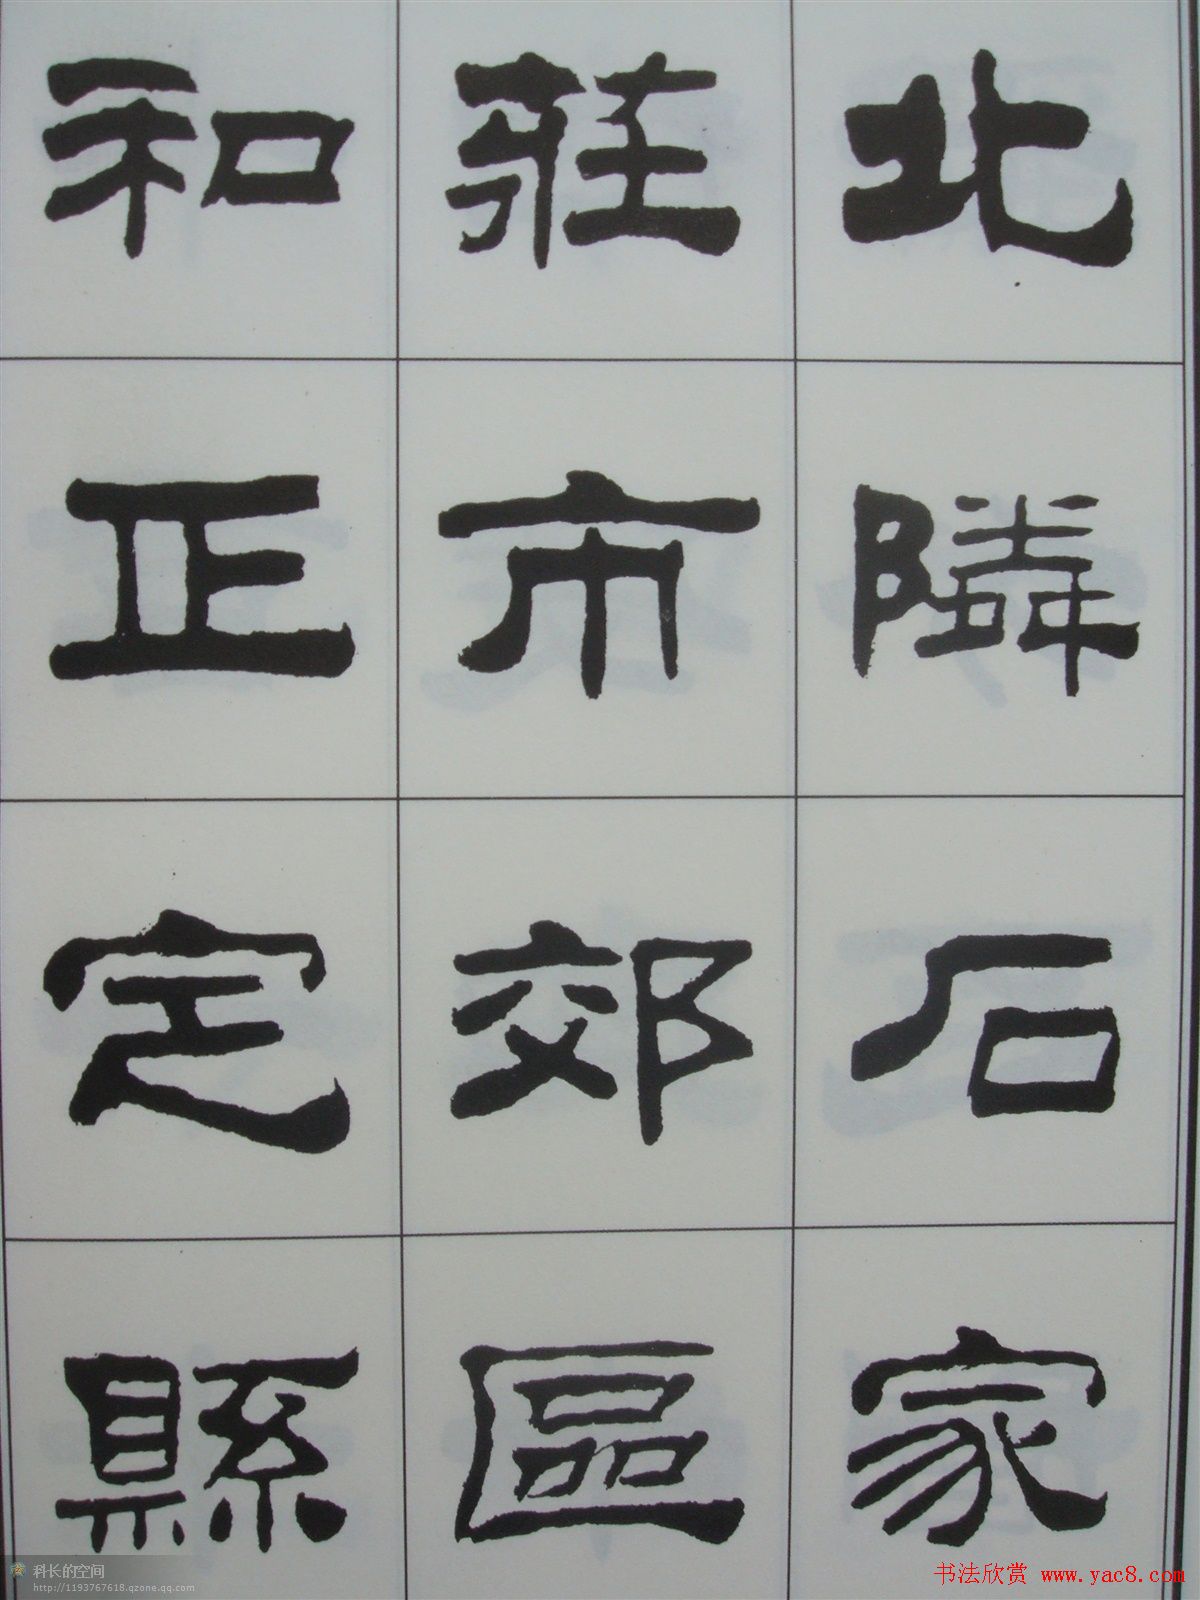 北隣石家
莊市郊區
和正定縣
科长的空间
http://1193767618.qzone.qq.com
书法欣赏 www.yac8.com